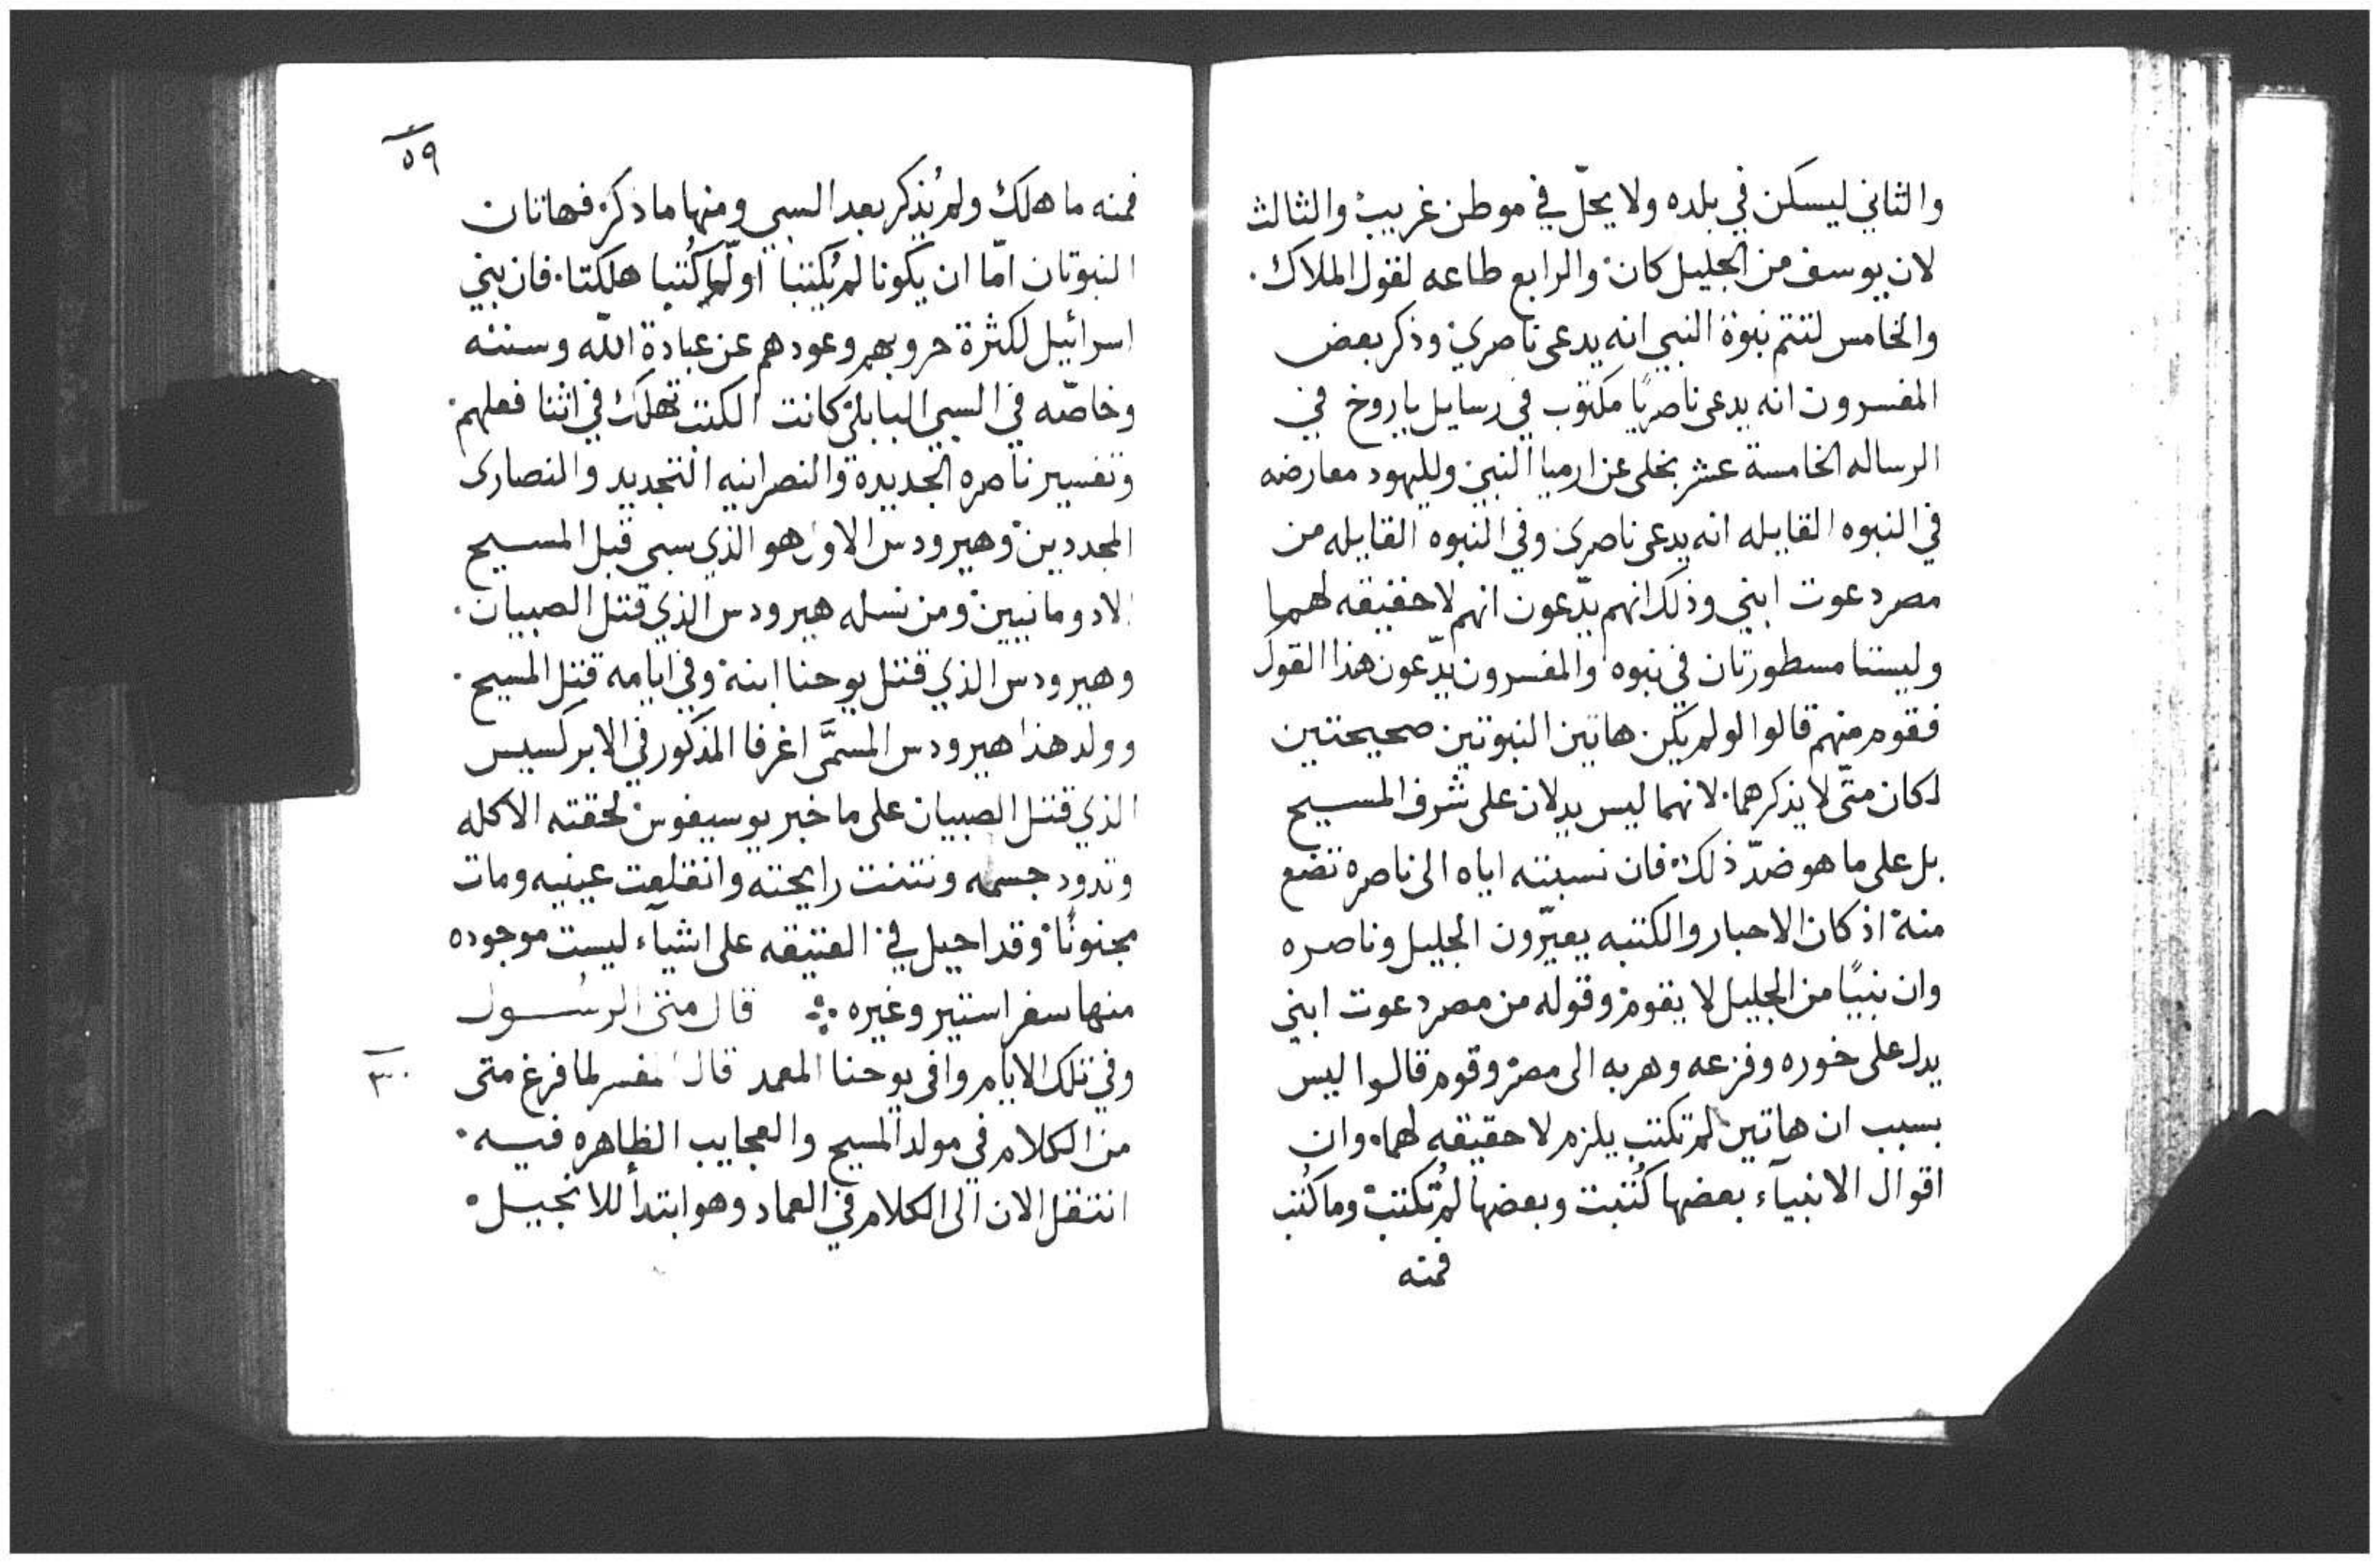 والثاني ليسكن في بلده ولا يحلّ في موطن غريب والثالث
لان يوسف من الجليل كان والرابع طاعه لقول الملاك.
والخامس لتتم نبوة النبي انه يدعى ناصري وذكر بعض
المفسرون انه يدعى ناصريًا مكتوب في رسايل ياروخ في
الرساله الخامسة عشر بخلى عن ارميا النبي ولليهود معارضه
في النبوه القايله انه يدعى ناصري وفي النبوه القايله من
مصر دعوت ابني وذلك انهم يدّعون انهم لا حقيقه لهما
وليستا مسطورتان في نبوه والمفسرون يدّعون هذا القول
فقوم منهم قالوا لو لم يكن هاتين النبوتين صحيحتين
لكان متّى لا يذكرهما. لانهما ليس يدلان على شرف المسيح
بل على ما هو ضدّ ذلك فان نسبته اياه الى ناصره تضع
منه اذ كان الاحبار والكتبه يعيّرون الجليل وناصره
وان نبيًا من الجليل لا يقوم وقوله من مصر دعوت ابني
يدل على خوره وفزعه وهربه الى مصر وقوم قالوا ليس
بسبب ان هاتين لم تكتب يلزم لا حقيقه لهما. وان
اقوال الانبيآء بعضها كُتبت وبعضها لم تُكتب وما كُتب
فمنه
٥٩
فمنه ما هلك ولم يُذكر بعد السبي ومنها ما ذكر فهاتان
النبوتان امّا ان يكونا لم يُكتبا او لمّا كُتبا هلكتا. فان بني
اسرائيل لكثرة حروبهم وعودهم عن عبادة الله وسننه
وخاصّه في السبي البابلي كانت الكتب تهلك في اثنا فعلهم.
وتفسير ناصره الجديدة والنصرانيه التجديد والنصارى
المجددين وهيرودس الاول هو الذي سبى قبل المسيح
الادومانيين ومن نسله هيرودس الذي قتل الصبيان.
وهيرودس الذي قتل يوحنا ابنه وفي ايامه قتل المسيح.
وولد هذا هيرودس المسمَّى اغرفا المذكور في الابركسيس
الذي قتل الصبيان على ما خبر يوسيفوس لحقته الاكله
وتدود جسمه ونتنت رايحته وانقلعت عينيه ومات
مجنونًا وقد احيل في العتيقه على اشيآء ليست موجوده
منها سفر استير وغيره ܀ قال متى الرسول
وفي تلك الايام وافى يوحنا المعمد قال المفسر لما فرغ متى
من الكلام في مولد المسيح والعجايب الظاهره فيه.
انتقل الان الى الكلام في العماد وهو ابتدأ للانجيل